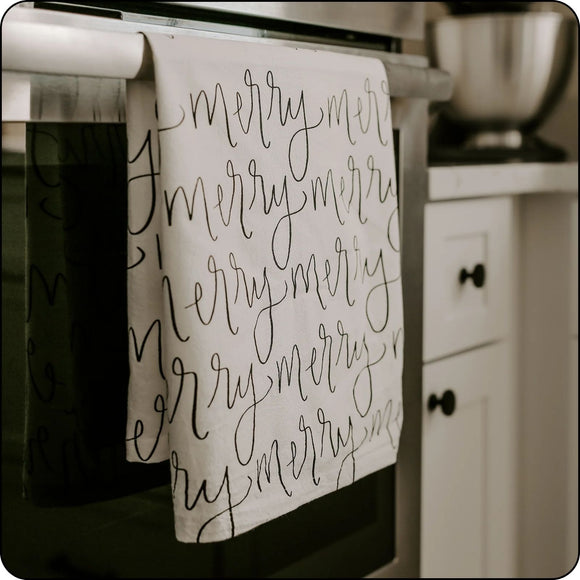 merry merry
merry merry
merry merry
merry merry
merry merry me